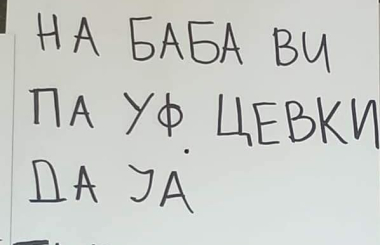 НА БАБА ВИ
ПА УФ. ЦЕВКИ
ДА ЈА